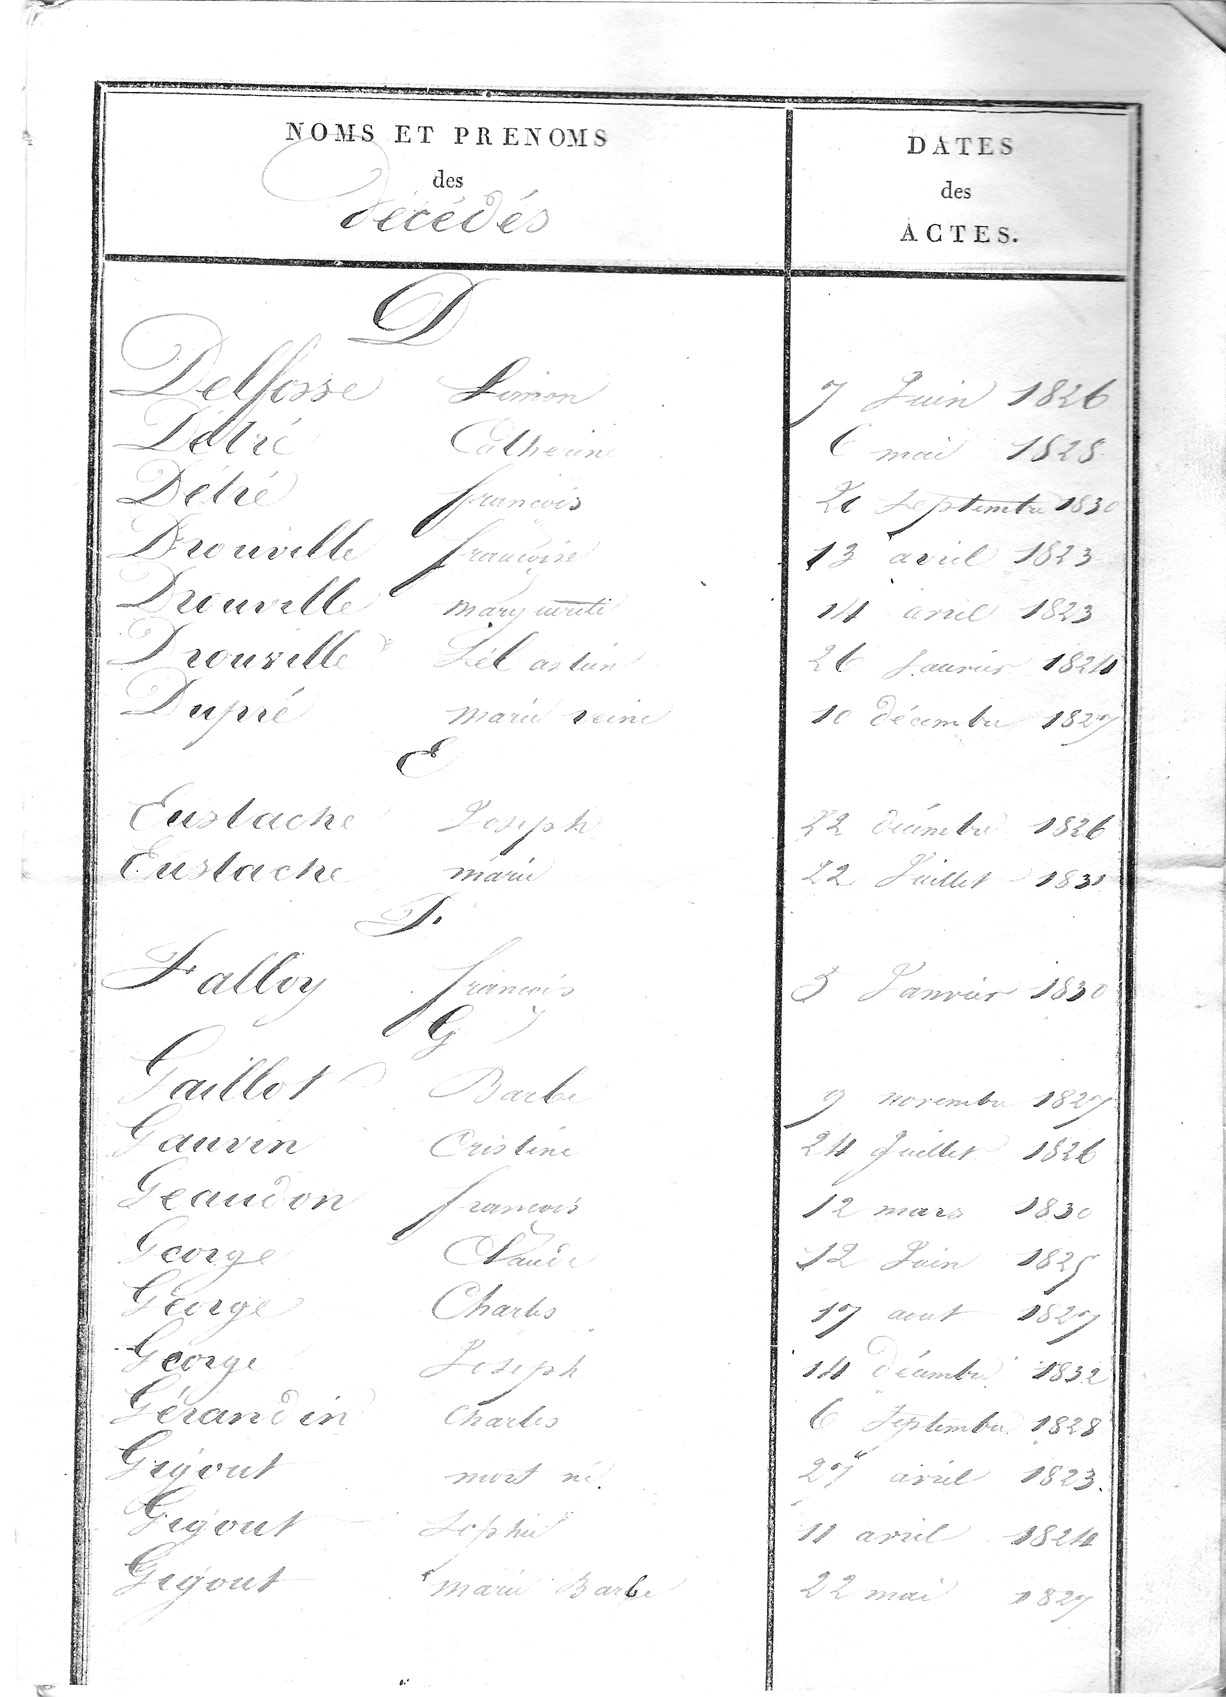 NOMS ET PRENOMS
des
décédés
DATES
des
ACTES.
D
Delfosse Simon 7 Juin 1826
Détré Catherine 6 mai 1828
Détré françois 21 Septembre 1830
Drouville françoise 13 avril 1823
Drouville marguerite 14 avril 1823
Drouville Sébastien 26 Janvier 1824
Dupré marie reine 10 décembre 1827
E
Eustache Joseph 22 décembre 1826
Eustache marie 22 Juillet 1831
F.
Falloy françois 5 Janvier 1830
G
Gaillot Barbe 9 novembre 1827
Gauvin Cristine 24 Juillet 1826
Geaudon françois 12 mars 1830
George Claude 12 Juin 1825
George Charles 17 aout 1827
George Joseph 14 décembre 1832
Gérandin Charles 6 Septembre 1828
Gigout mort né. 27 avril 1823.
Gigout Sophie 11 avril 1824
Gigout marie Barbe 22 mai 1827